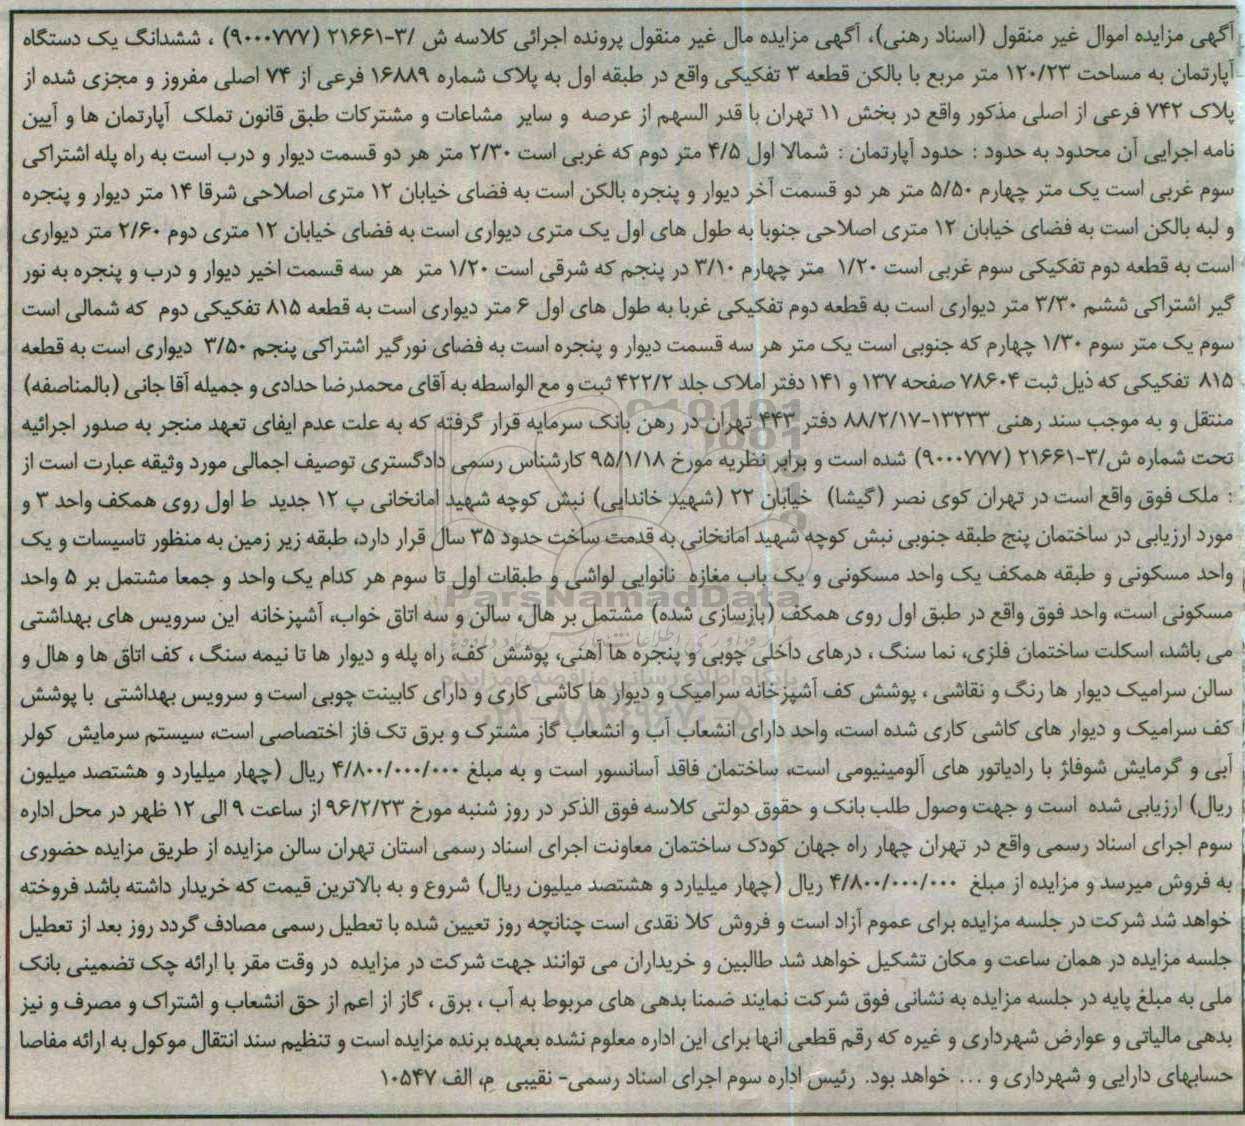 آگهی مزایده اموال غیر منقول (اسناد رهنی)، آگهی مزایده مال غیر منقول پرونده اجرائی کلاسه ش /۳-۲۱۶۶۱ (۹۰۰۰۷۷۷) ، ششدانگ یک دستگاه
آپارتمان به مساحت ۱۲۰/۲۳ متر مربع با بالکن قطعه ۳ تفکیکی واقع در طبقه اول به پلاک شماره ۱۶۸۸۹ فرعی از ۷۴ اصلی مفروز و مجزی شده از
پلاک ۷۴۲ فرعی از اصلی مذکور واقع در بخش ۱۱ تهران با قدر السهم از عرصه و سایر مشاعات و مشترکات طبق قانون تملک آپارتمان ها و آیین
نامه اجرایی آن محدود به حدود : حدود آپارتمان : شمالا اول ۴/۵ متر دوم که غربی است ۲/۳۰ متر هر دو قسمت دیوار و درب است به راه پله اشتراکی
سوم غربی است یک متر چهارم ۵/۵۰ متر هر دو قسمت آخر دیوار و پنجره بالکن است به فضای خیابان ۱۲ متری اصلاحی شرقا ۱۴ متر دیوار و پنجره
و لبه بالکن است به فضای خیابان ۱۲ متری اصلاحی جنوبا به طول های اول یک متری دیواری است به فضای خیابان ۱۲ متری دوم ۲/۶۰ متر دیواری
است به قطعه دوم تفکیکی سوم غربی است ۱/۲۰ متر چهارم ۳/۱۰ در پنجم که شرقی است ۱/۲۰ متر هر سه قسمت اخیر دیوار و درب و پنجره به نور
گیر اشتراکی ششم ۳/۳۰ متر دیواری است به قطعه دوم تفکیکی غربا به طول های اول ۶ متر دیواری است به قطعه ۸۱۵ تفکیکی دوم که شمالی است
سوم یک متر سوم ۱/۳۰ چهارم که جنوبی است یک متر هر سه قسمت دیوار و پنجره است به فضای نورگیر اشتراکی پنجم ۳/۵۰ دیواری است به قطعه
۸۱۵ تفکیکی که ذیل ثبت ۷۸۶۰۴ صفحه ۱۳۷ و ۱۴۱ دفتر املاک جلد ۴۲۲/۲ ثبت و مع الواسطه به آقای محمدرضا حدادی و جمیله آقا جانی (بالمناصفه)
منتقل و به موجب سند رهنی ۱۳۲۳۳-۸۸/۲/۱۷ دفتر ۴۴۳ تهران در رهن بانک سرمایه قرار گرفته که به علت عدم ایفای تعهد منجر به صدور اجرائیه
تحت شماره ش/۳-۲۱۶۶۱ (۹۰۰۰۷۷۷) شده است و برابر نظریه مورخ ۹۵/۱/۱۸ کارشناس رسمی دادگستری توصیف اجمالی مورد وثیقه عبارت است از
: ملک فوق واقع است در تهران کوی نصر (گیشا) خیابان ۲۲ (شهید خاندایی) نبش کوچه شهید امانخانی پ ۱۲ جدید ط اول روی همکف واحد ۳ و
مورد ارزیابی در ساختمان پنج طبقه جنوبی نبش کوچه شهید امانخانی به قدمت ساخت حدود ۳۵ سال قرار دارد، طبقه زیر زمین به منظور تاسیسات و یک
واحد مسکونی و طبقه همکف یک واحد مسکونی و یک باب مغازه نانوایی لواشی و طبقات اول تا سوم هر کدام یک واحد و جمعا مشتمل بر ۵ واحد
مسکونی است، واحد فوق واقع در طبق اول روی همکف (بازسازی شده) مشتمل بر هال، سالن و سه اتاق خواب، آشپزخانه این سرویس های بهداشتی
می باشد، اسکلت ساختمان فلزی، نما سنگ ، درهای داخلی چوبی و پنجره ها آهنی، پوشش کف، راه پله و دیوار ها تا نیمه سنگ ، کف اتاق ها و هال و
سالن سرامیک دیوار ها رنگ و نقاشی ، پوشش کف آشپزخانه سرامیک و دیوار ها کاشی کاری و دارای کابینت چوبی است و سرویس بهداشتی با پوشش
کف سرامیک و دیوار های کاشی کاری شده است، واحد دارای انشعاب آب و انشعاب گاز مشترک و برق تک فاز اختصاصی است، سیستم سرمایش کولر
آبی و گرمایش شوفاژ با رادیاتور های آلومینیومی است، ساختمان فاقد آسانسور است و به مبلغ ۴/۸۰۰/۰۰۰/۰۰۰ ریال (چهار میلیارد و هشتصد میلیون
ریال) ارزیابی شده است و جهت وصول طلب بانک و حقوق دولتی کلاسه فوق الذکر در روز شنبه مورخ ۹۶/۲/۲۳ از ساعت ۹ الی ۱۲ ظهر در محل اداره
سوم اجرای اسناد رسمی واقع در تهران چهار راه جهان کودک ساختمان معاونت اجرای اسناد رسمی استان تهران سالن مزایده از طریق مزایده حضوری
به فروش میرسد و مزایده از مبلغ ۴/۸۰۰/۰۰۰/۰۰۰ ریال (چهار میلیارد و هشتصد میلیون ریال) شروع و به بالاترین قیمت که خریدار داشته باشد فروخته
خواهد شد شرکت در جلسه مزایده برای عموم آزاد است و فروش کلا نقدی است چنانچه روز تعیین شده با تعطیل رسمی مصادف گردد روز بعد از تعطیل
جلسه مزایده در همان ساعت و مکان تشکیل خواهد شد طالبین و خریداران می توانند جهت شرکت در مزایده در وقت مقر با ارائه چک تضمینی بانک
ملی به مبلغ پایه در جلسه مزایده به نشانی فوق شرکت نمایند ضمنا بدهی های مربوط به آب ، برق ، گاز از اعم از حق انشعاب و اشتراک و مصرف و نیز
بدهی مالیاتی و عوارض شهرداری و غیره که رقم قطعی انها برای این اداره معلوم نشده بعهده برنده مزایده است و تنظیم سند انتقال موکول به ارائه مفاصا
حسابهای دارایی و شهرداری و ... خواهد بود. رئیس اداره سوم اجرای اسناد رسمی- نقیبی م، الف ۱۰۵۴۷
ParsNamadData